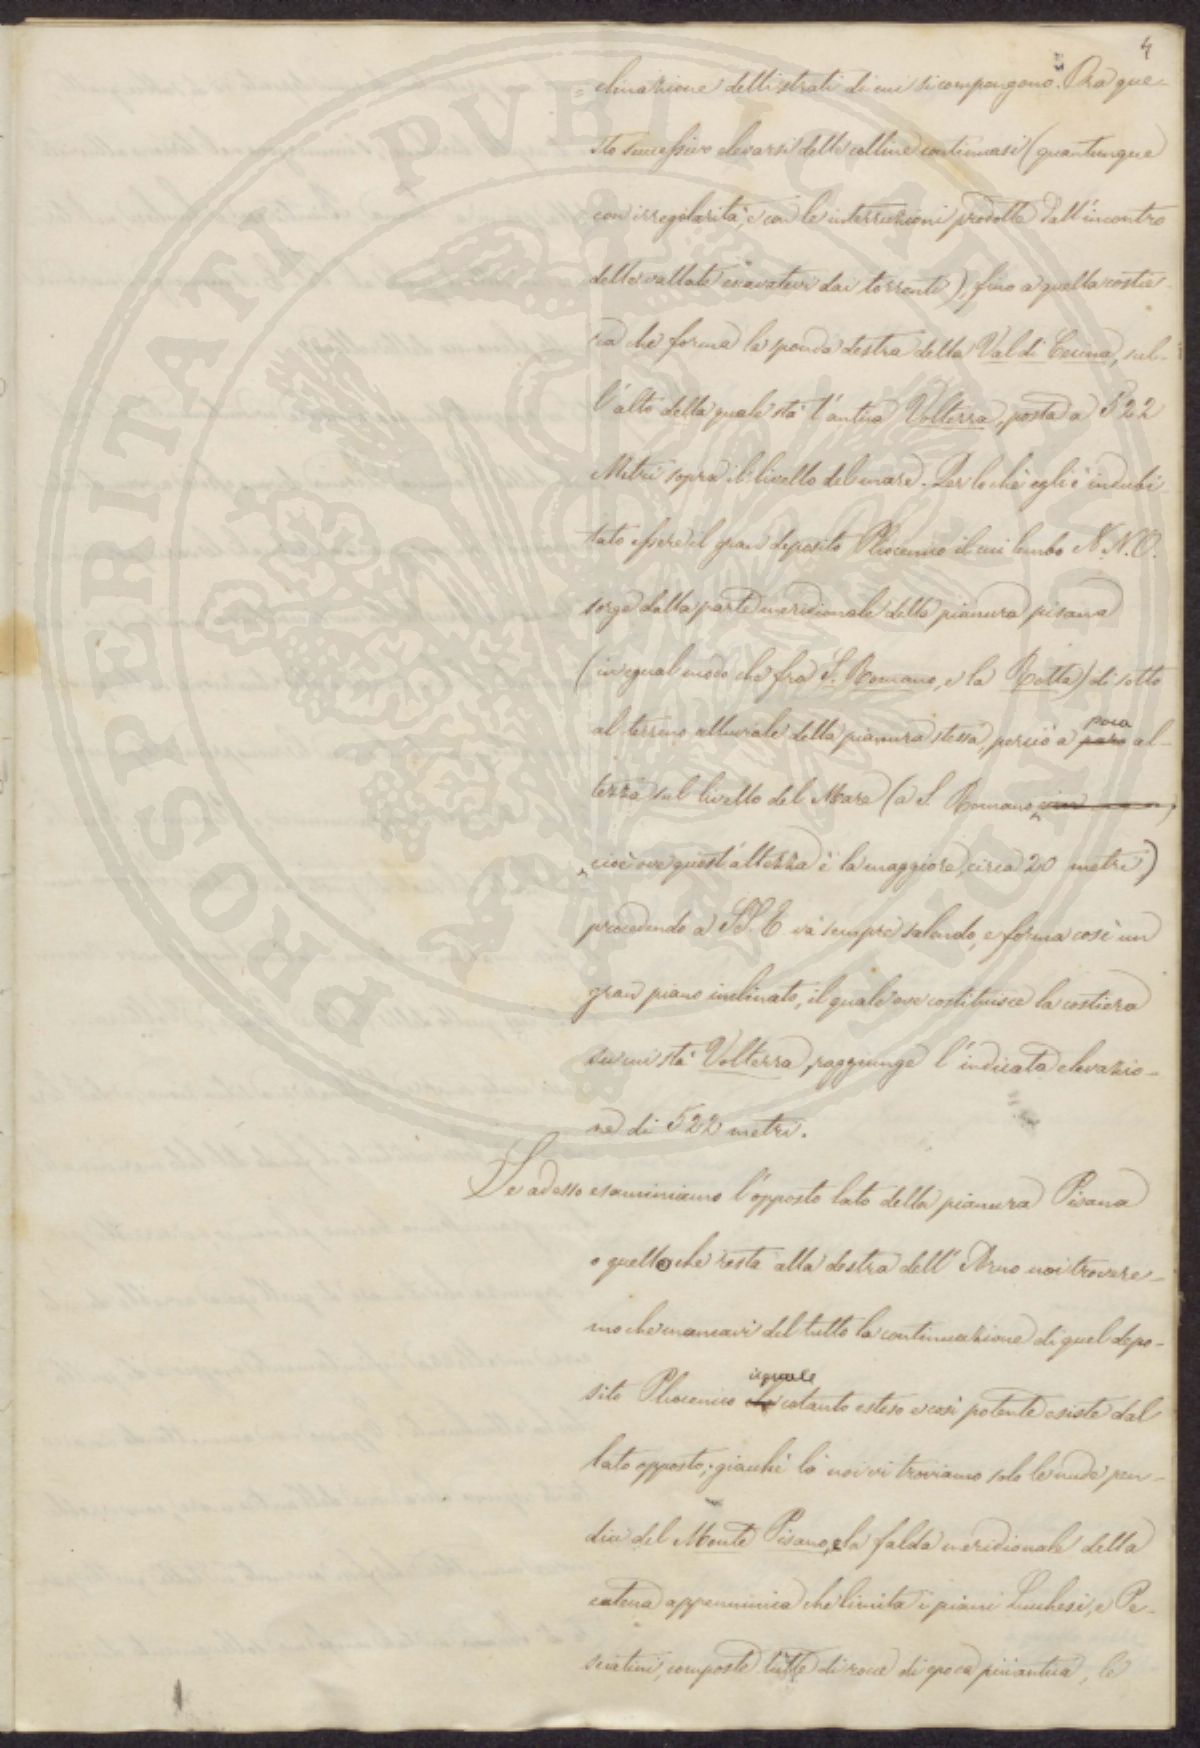 4
clinazione delli strati di cui si compongono. Ora que-
sto successivo elevarsi delle colline continuasi (quantunque
con irregolarità, e con le interruzioni prodotte dall'incontro
delle vallate escavatevi dai torrenti), fino a quella costie-
ra che forma la sponda destra della Val di Cecina, sul-
l'alto della quale sta l'antica Volterra, posta a 522
Metri sopra il livello del mare. Per lo che egli è indubi-
tato essere il gran deposito Pliocenico il cui lembo N.N.O.
sorge dalla parte meridionale della pianura pisana
(in egual modo che fra S. Romano, e la Rotta) di sotto
al terreno alluviale della pianura stessa, perciò a poca al-
tezza sul livello del Mare (a S. Romano,
cioè ove quest'altezza è la maggiore, circa 20 metri)
procedendo a S.S.E. va sempre salendo, e forma così un
gran piano inclinato, il quale ove costituisce la costiera
su cui sta Volterra, raggiunge l'indicata elevazio-
ne di 522 metri.
Se adesso esaminiamo l'opposto lato della pianura Pisana
o quello che resta alla destra dell'Arno noi trovere-
mo che mancavi del tutto la continuazione di quel depo-
sito Pliocenico il quale cotanto esteso e così potente esiste dal
lato opposto; giacchè là noi vi troviamo solo le nude pen-
dici del Monte Pisano, e la falda meridionale della
catena appenninica che limita i piani Lucchesi, e Pe-
sciatini, composte tutte di rocce di epoca più antica, le
PROSPERITATI PUBLICAE AUGENDAE